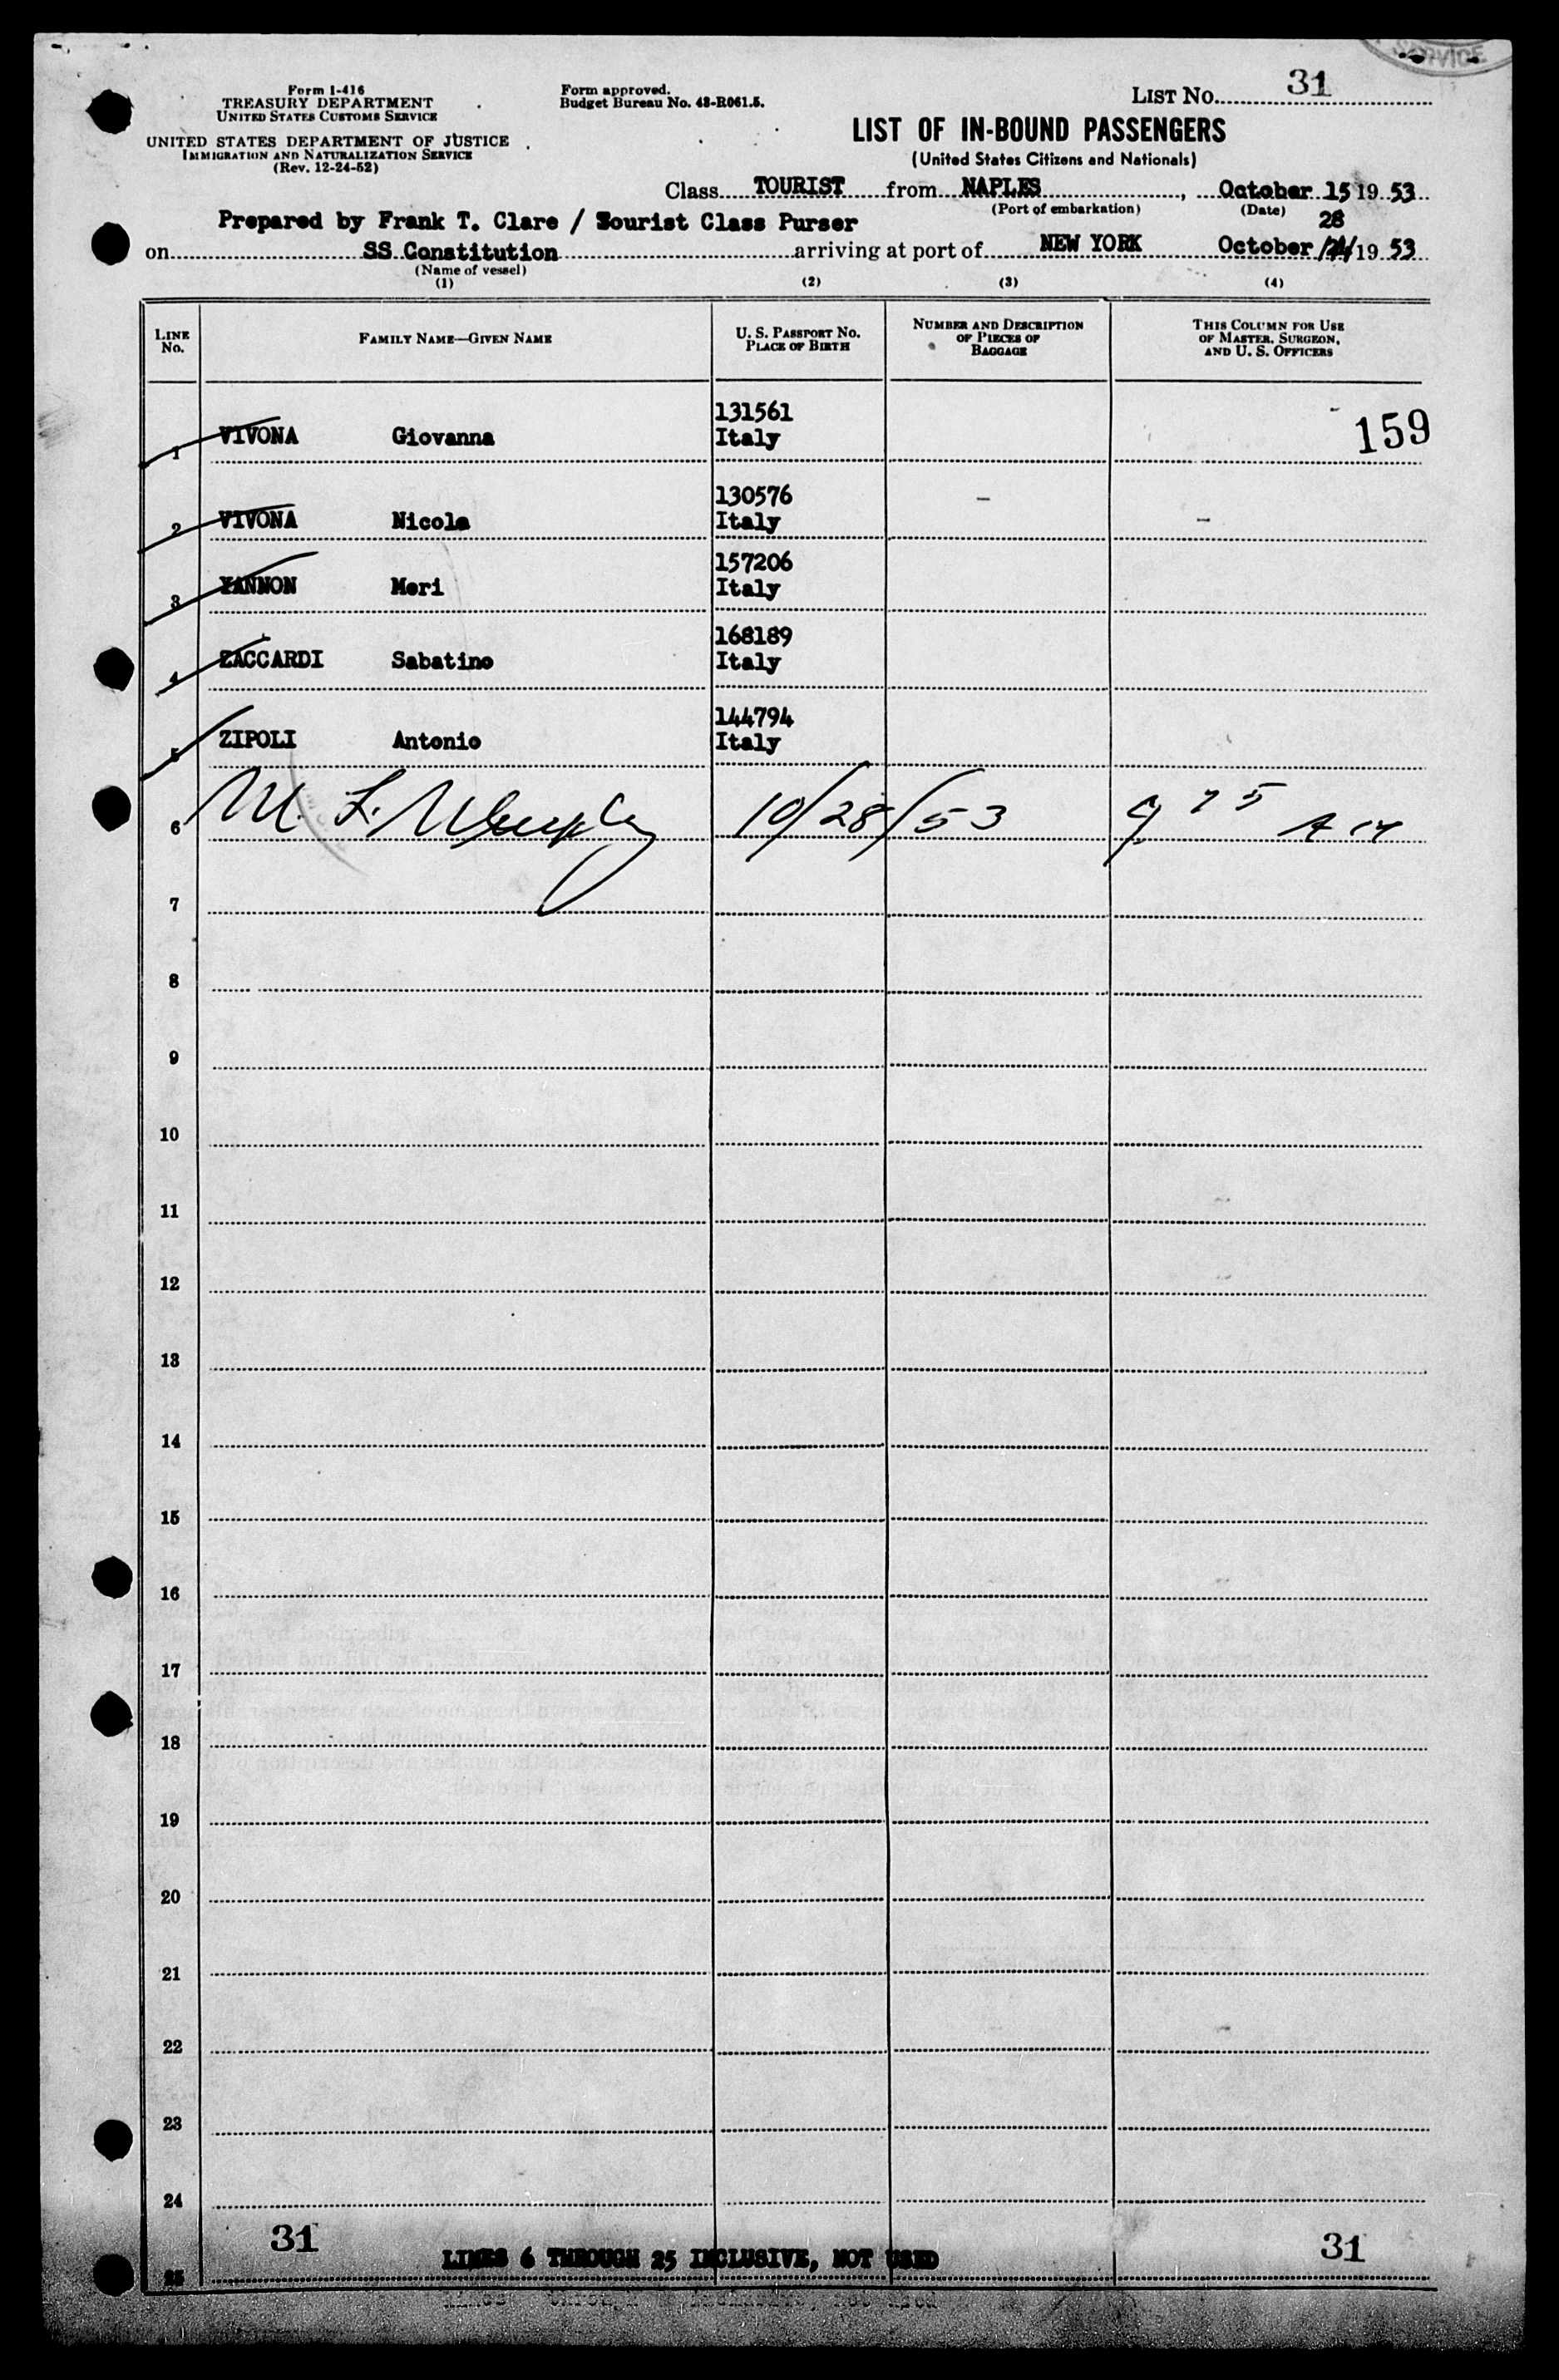 SERVICE
Form I-416
TREASURY DEPARTMENT
UNITED STATES CUSTOMS SERVICE
UNITED STATES DEPARTMENT OF JUSTICE
IMMIGRATION AND NATURALIZATION SERVICE
(Rev. 12-24-52)
Form approved.
Budget Bureau No. 43-R061.5.
LIST No. 31
LIST OF IN-BOUND PASSENGERS
(United States Citizens and Nationals)
Class TOURIST from NAPLES, October 15 19 53
(Port of embarkation) (Date)
Prepared by Frank T. Clare / Tourist Class Purser 28
on SS Constitution arriving at port of NEW YORK October 19 53
(Name of vessel)
(1) (2) (3) (4)
LINE No. FAMILY NAME—GIVEN NAME U. S. PASSPORT No. PLACE OF BIRTH NUMBER AND DESCRIPTION OF PIECES OF BAGGAGE THIS COLUMN FOR USE OF MASTER, SURGEON, AND U. S. OFFICERS
131561
1 VIVONA Giovanna Italy 159
130576
2 VIVONA Nicola Italy
157206
3 YANNON Meri Italy
168189
4 ZACCARDI Sabatino Italy
144794
5 ZIPOLI Antonio Italy
6 M. L. 10/28/53
7
8
9
10
11
12
13
14
15
16
17
18
19
20
21
22
23
24
31 31
LINES 6 THROUGH 25 INCLUSIVE, NOT USED
25